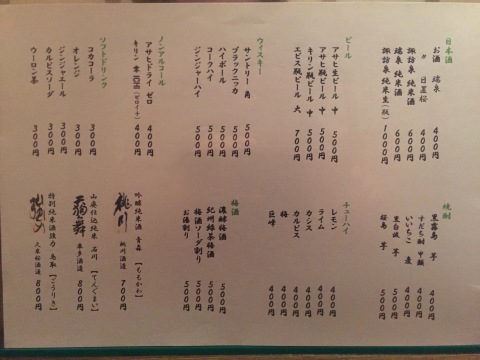 日本酒
お酒 瑞泉 400円
〃 日置桜 400円
諏訪泉 純米酒 600円
瑞泉 純米酒 600円
諏訪泉 純米生(瓶) 1000円
ビール
アサヒ生ビール 中 500円
アサヒ瓶ビール 中 500円
キリン瓶ビール 中 500円
エビス瓶ビール 大 700円
ウィスキー
サントリー 角 500円
ブラックニッカ 500円
ハイボール 500円
コークハイ 500円
ジンジャーハイ 500円
ノンアルコール
アサヒドライ ゼロ 400円
キリン 零ICHI(ゼロイチ) 400円
ソフトドリンク
コカコーラ 300円
オレンジ 300円
ジンジャエール 300円
カルピスソーダ 300円
ウーロン茶 300円
焼酎
黒霧島 芋 400円
すだち酎 甲類 400円
いいちこ 麦 400円
黒白波 芋 500円
桜島 芋 500円
チューハイ
レモン 400円
ライム 400円
カシス 400円
カルピス 400円
梅 400円
巨峰 400円
梅酒
濃醇梅酒 500円
紀州緑茶梅酒 500円
梅酒ソーダ割り 500円
お湯割り 500円
桃川
吟醸純米酒 青森 【ももかわ】
桃川酒造 700円
天狗舞
山廃仕込純米 石川 【てんぐまい】
車多酒造 800円
特別純米酒強力 鳥取 【ごうりき】
久米桜酒造 800円